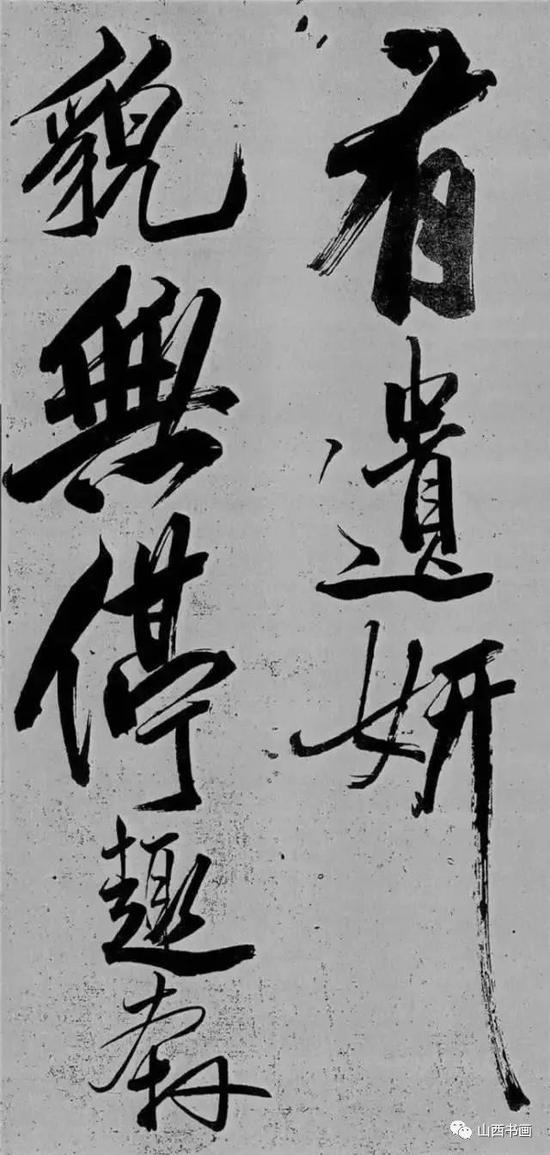 有遺妍
貌無停趣奔
山西书画